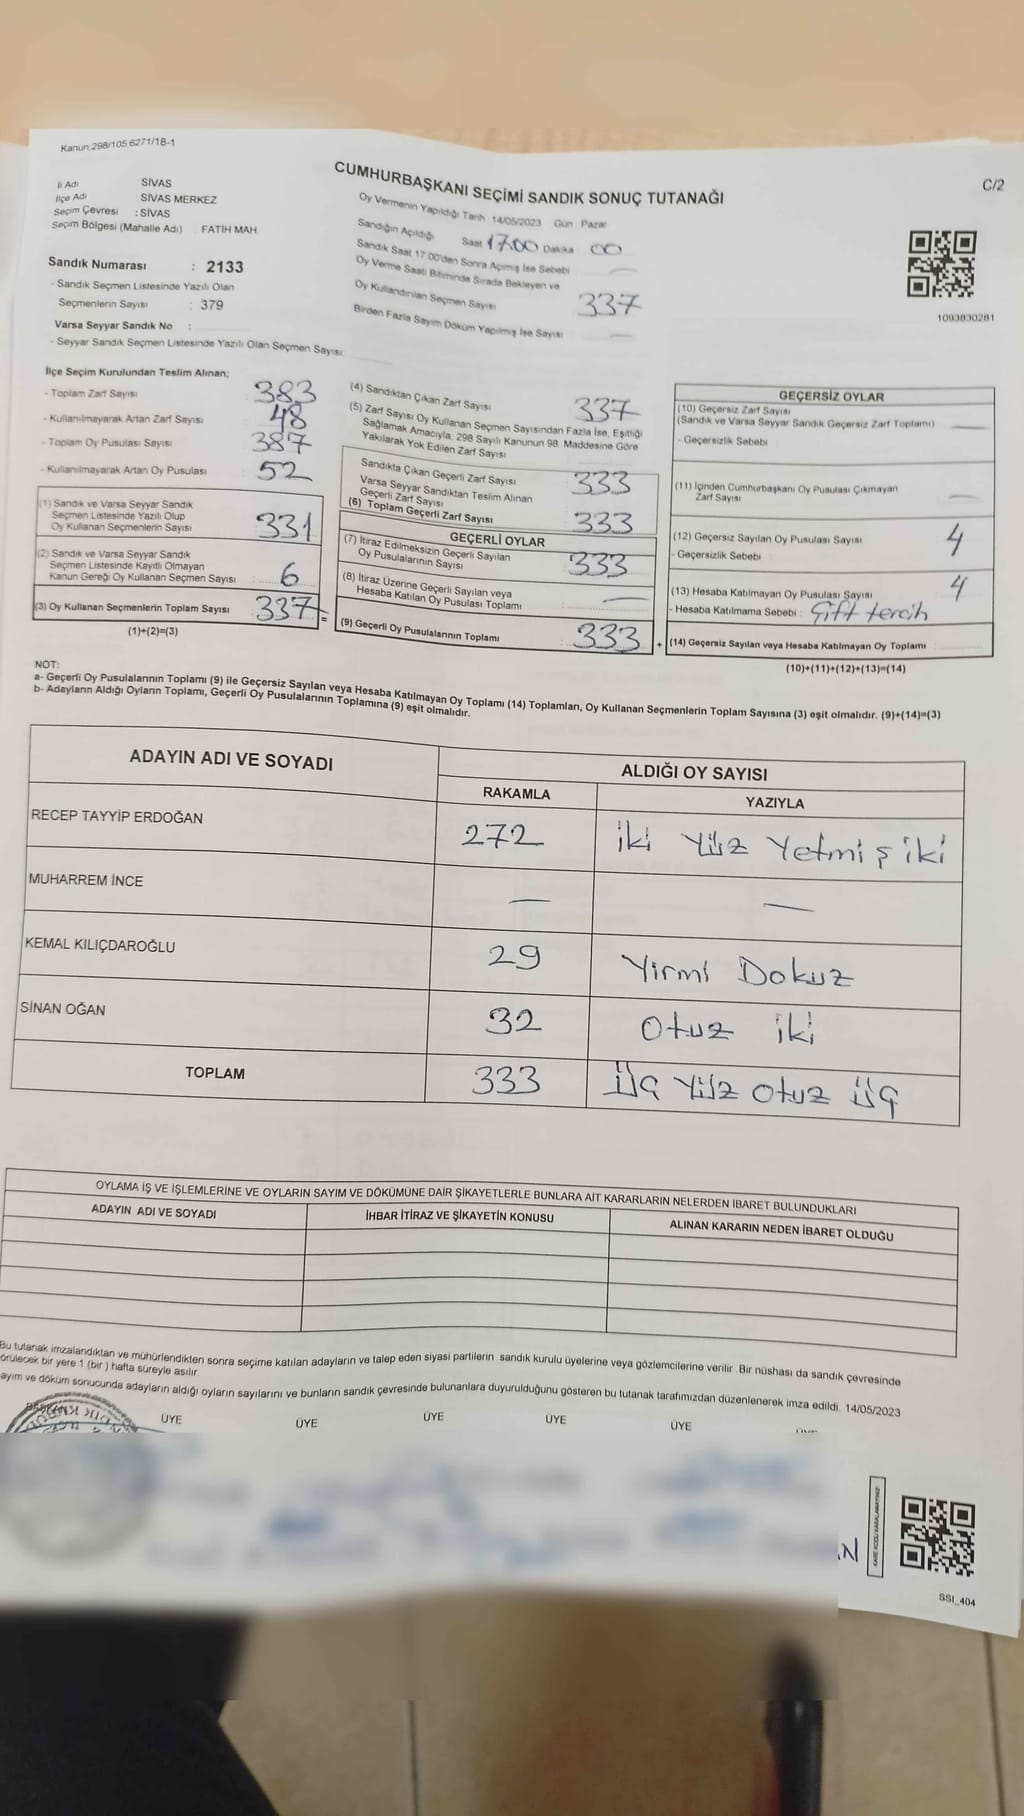 Kanun 298/105,6271/18-1
C/2
CUMHURBAŞKANI SEÇİMİ SANDIK SONUÇ TUTANAĞI
İl Adı SİVAS
İlçe Adı : SİVAS MERKEZ
Seçim Çevresi : SİVAS
Seçim Bölgesi (Mahalle Adı) FATİH MAH.
Sandık Numarası : 2133
- Sandık Seçmen Listesinde Yazılı Olan
Seçmenlerin Sayısı : 379
Varsa Seyyar Sandık No :
- Seyyar Sandık Seçmen Listesinde Yazılı Olan Seçmen Sayısı:
Oy Vermenin Yapıldığı Tarih : 14/05/2023 Gün : Pazar
Sandığın Açıldığı Saat 17.00 Dakika 00
Sandık Saat 17.00'den Sonra Açımış İse Sebebi —
Oy Verme Saati Bitiminde Sırada Bekleyen ve
Oy Kullandırılan Seçmen Sayısı 337
Birden Fazla Sayım Döküm Yapılmış İse Sayısı —
1093830281
İlçe Seçim Kurulundan Teslim Alınan;
- Toplam Zarf Sayısı 383
- Kullanılmayarak Artan Zarf Sayısı 48
- Toplam Oy Pusulası Sayısı 387
- Kullanılmayarak Artan Oy Pusulası 52
(1) Sandık ve Varsa Seyyar Sandık
Seçmen Listesinde Yazılı Olup
Oy Kullanan Seçmenlerin Sayısı 331
(2) Sandık ve Varsa Seyyar Sandık
Seçmen Listesinde Kayıtlı Olmayan
Kanun Gereği Oy Kullanan Seçmen Sayısı 6
(3) Oy Kullanan Seçmenlerin Toplam Sayısı 337 =
(1)+(2)=(3)
(4) Sandıktan Çıkan Zarf Sayısı 337
(5) Zarf Sayısı Oy Kullanan Seçmen Sayısından Fazla İse, Eşitliği
Sağlamak Amacıyla, 298 Sayılı Kanunun 98. Maddesine Göre
Yakılarak Yok Edilen Zarf Sayısı
Sandıkta Çıkan Geçerli Zarf Sayısı 333
Varsa Seyyar Sandıktan Teslim Alınan
Geçerli Zarf Sayısı
(6) Toplam Geçerli Zarf Sayısı 333
GEÇERLİ OYLAR
(7) İtiraz Edilmeksizin Geçerli Sayılan
Oy Pusulalarının Sayısı 333
(8) İtiraz Üzerine Geçerli Sayılan veya
Hesaba Katılan Oy Pusulası Toplamı —
(9) Geçerli Oy Pusulalarının Toplamı 333 +
GEÇERSİZ OYLAR
(10) Geçersiz Zarf Sayısı
(Sandık ve Varsa Seyyar Sandık Geçersiz Zarf Toplamı) —
- Geçersizlik Sebebi
(11) İçinden Cumhurbaşkanı Oy Pusulası Çıkmayan
Zarf Sayısı —
(12) Geçersiz Sayılan Oy Pusulası Sayısı 4
- Geçersizlik Sebebi
(13) Hesaba Katılmayan Oy Pusulası Sayısı 4
- Hesaba Katılmama Sebebi : Çift tercih
(14) Geçersiz Sayılan veya Hesaba Katılmayan Oy Toplamı
(10)+(11)+(12)+(13)=(14)
NOT:
a- Geçerli Oy Pusulalarının Toplamı (9) ile Geçersiz Sayılan veya Hesaba Katılmayan Oy Toplamı (14) Toplamları, Oy Kullanan Seçmenlerin Toplam Sayısına (3) eşit olmalıdır. (9)+(14)=(3)
b- Adayların Aldığı Oyların Toplamı, Geçerli Oy Pusulalarının Toplamına (9) eşit olmalıdır.
ADAYIN ADI VE SOYADI ALDIĞI OY SAYISI
RAKAMLA YAZIYLA
RECEP TAYYİP ERDOĞAN 272 iki yüz Yetmiş iki
MUHARREM İNCE — —
KEMAL KILIÇDAROĞLU 29 Yirmi Dokuz
SİNAN OĞAN 32 Otuz iki
TOPLAM 333 Üç Yüz Otuz Üç
OYLAMA İŞ VE İŞLEMLERİNE VE OYLARIN SAYIM VE DÖKÜMÜNE DAİR ŞİKAYETLERLE BUNLARA AİT KARARLARIN NELERDEN İBARET BULUNDUKLARI
ADAYIN ADI VE SOYADI İHBAR İTİRAZ VE ŞİKAYETİN KONUSU ALINAN KARARIN NEDEN İBARET OLDUĞU
Bu tutanak imzalandıktan ve mühürlendikten sonra seçime katılan adayların ve talep eden siyasi partilerin sandık kurulu üyelerine veya gözlemcilerine verilir. Bir nüshası da sandık çevresinde
örülecek bir yere 1 (bir) hafta süreyle asılır.
ayım ve döküm sonucunda adayların aldığı oyların sayılarını ve bunların sandık çevresinde bulunanlara duyurulduğunu gösteren bu tutanak tarafımızdan düzenlenerek imza edildi. 14/05/2023
BAŞKAN ÜYE ÜYE ÜYE ÜYE ÜYE
SSI_404